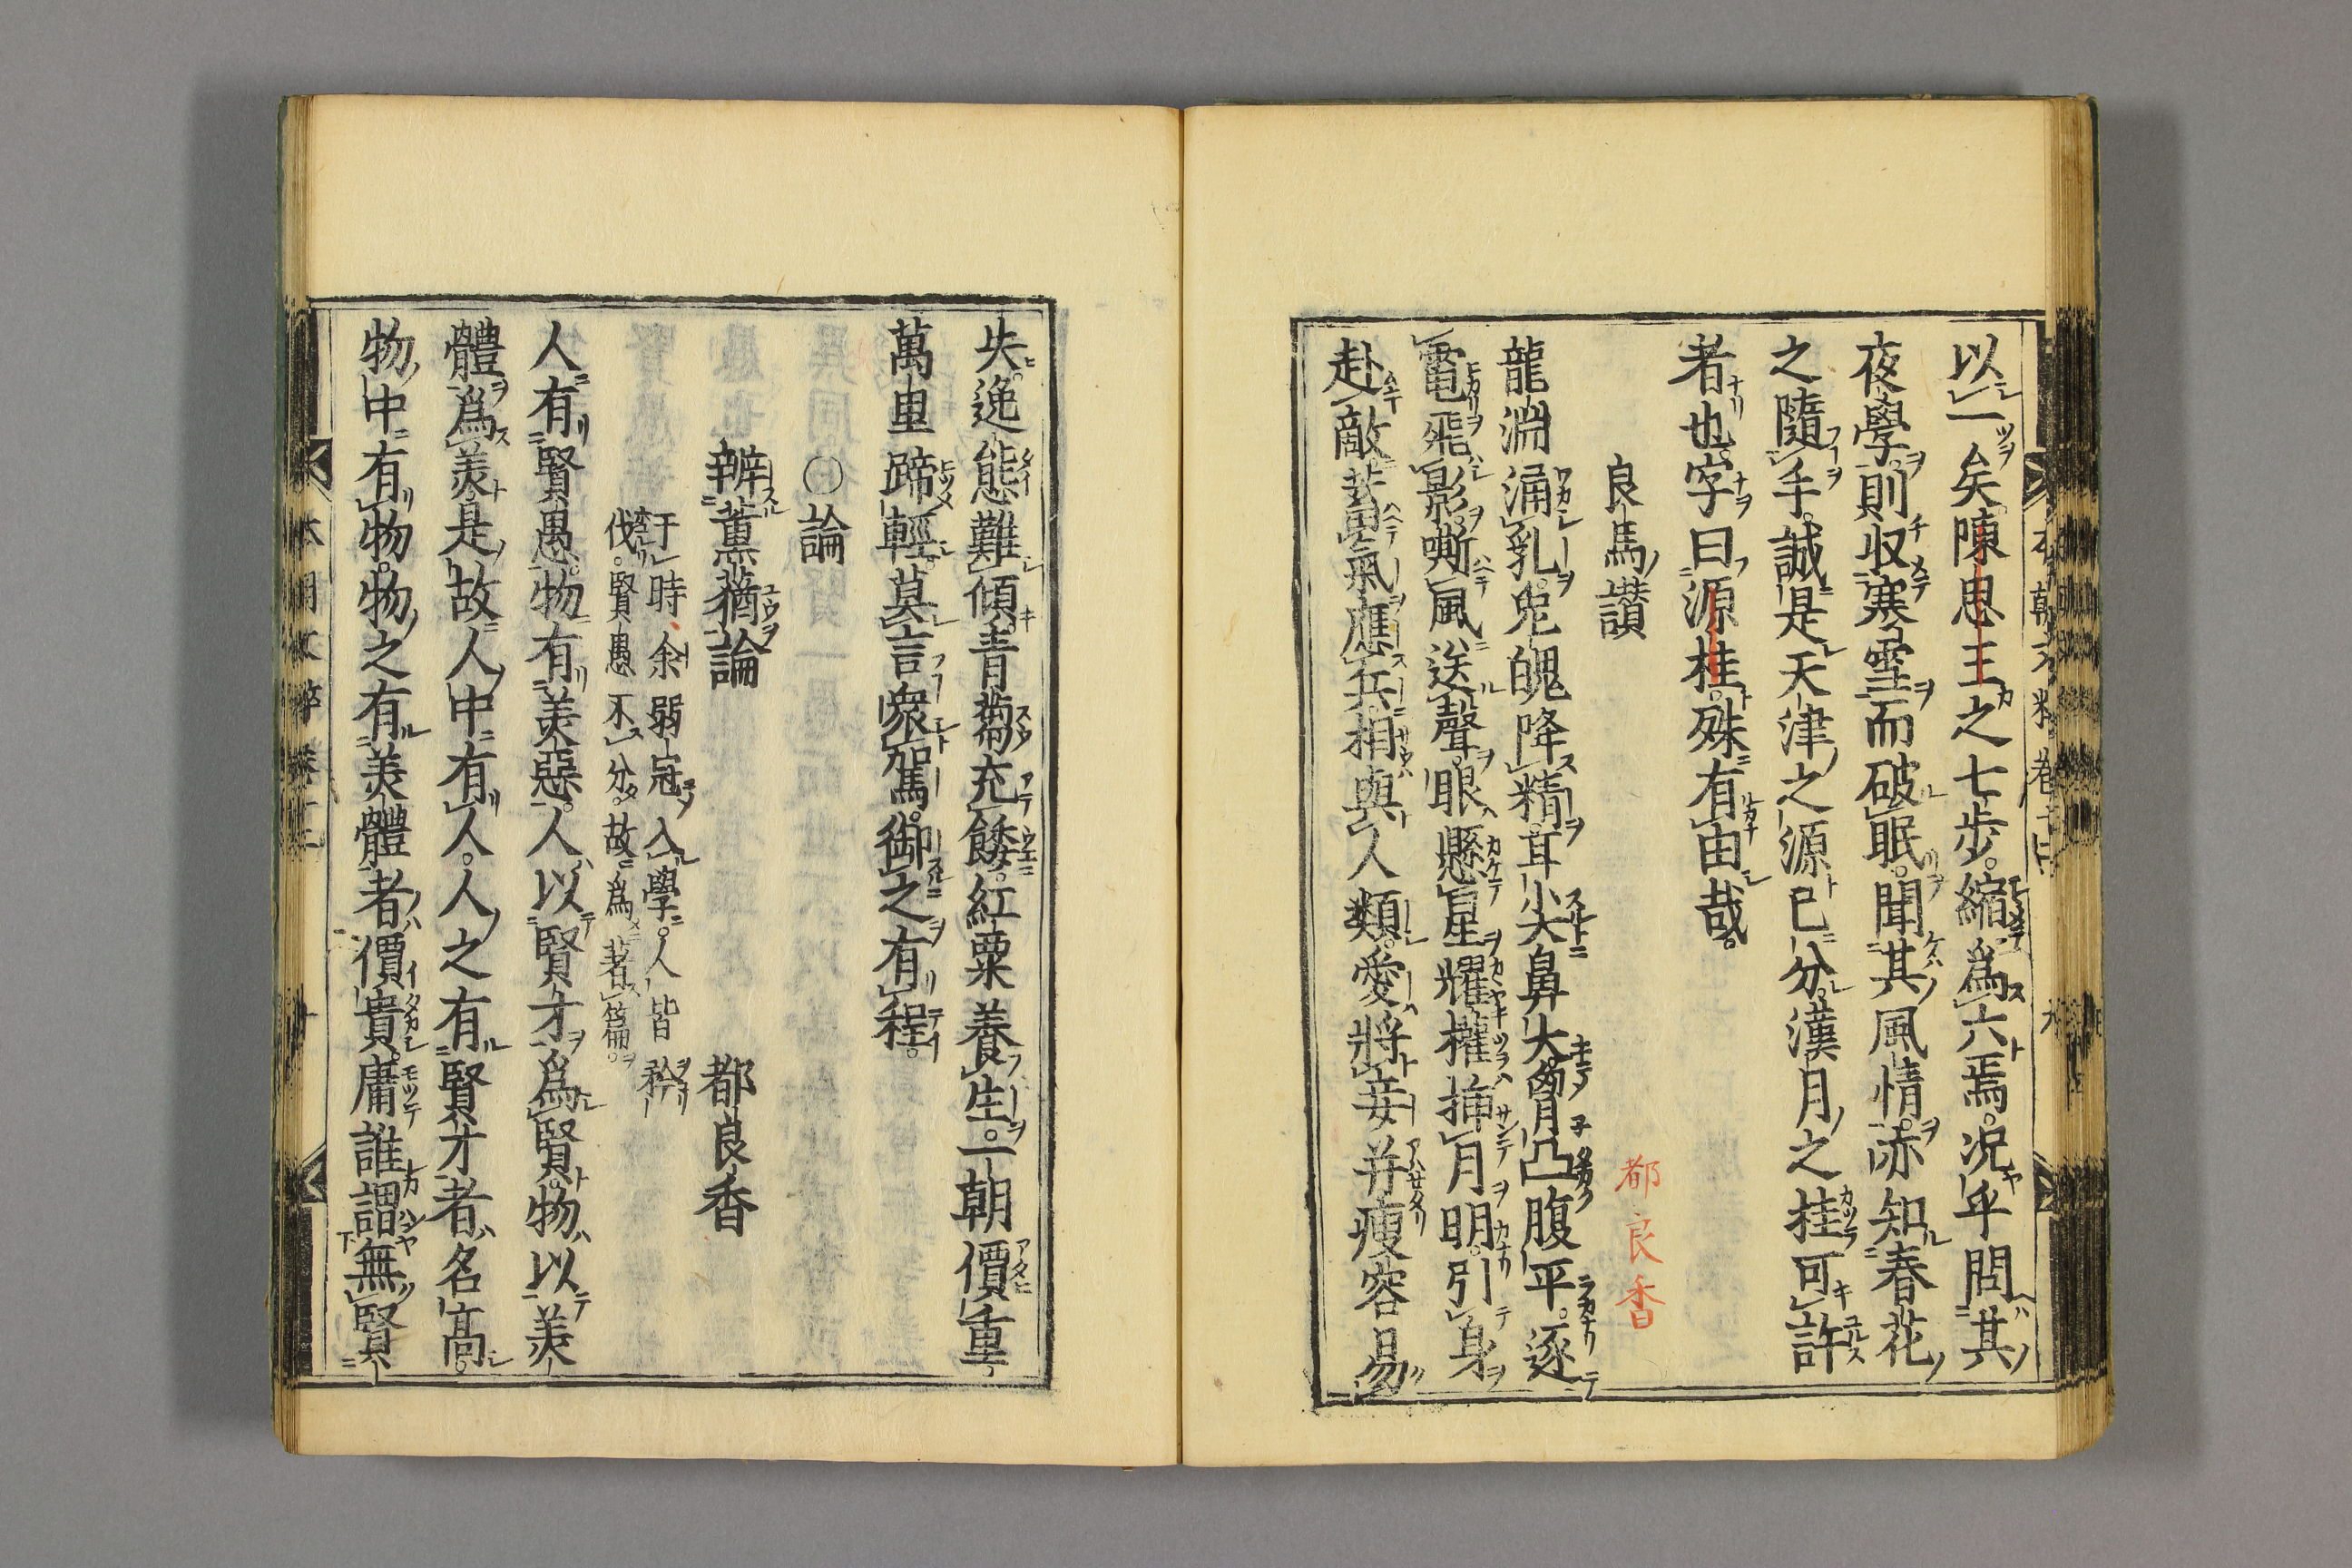 以一矣陳思王之七歩。縮爲六焉。况乎問其
夜學。則収寒雪而破眠。聞其風情。亦知春花
之隨手。誠是天津之源已分。漢月之桂可許
者也。字曰源桂。殊有由哉。
良馬讃
都良香
龍淵涌乳。兎魄降精。耳尖鼻大。胷凸腹平。逐
電飛影。嘶風送聲。眼懸星耀。權挿月明。引身
赴敵。芸氣應兵。相與人類。愛將妾并。瘦容易
失。逸態難傾。青蒭充餧。紅粟養生。一朝價重。
萬里蹄輕。莫言衆駕。御之有程。
〇論
辨薫蕕論 都良香
于時余弱冠入學。人皆矜
伐。賢愚不分。故爲著篇。
人有賢愚。物有美惡。人以賢才爲賢。物以美
體爲美。是故人中有人。人之有賢才者名高。
物中有物。物之有美體者價貴。庸誰謂無賢